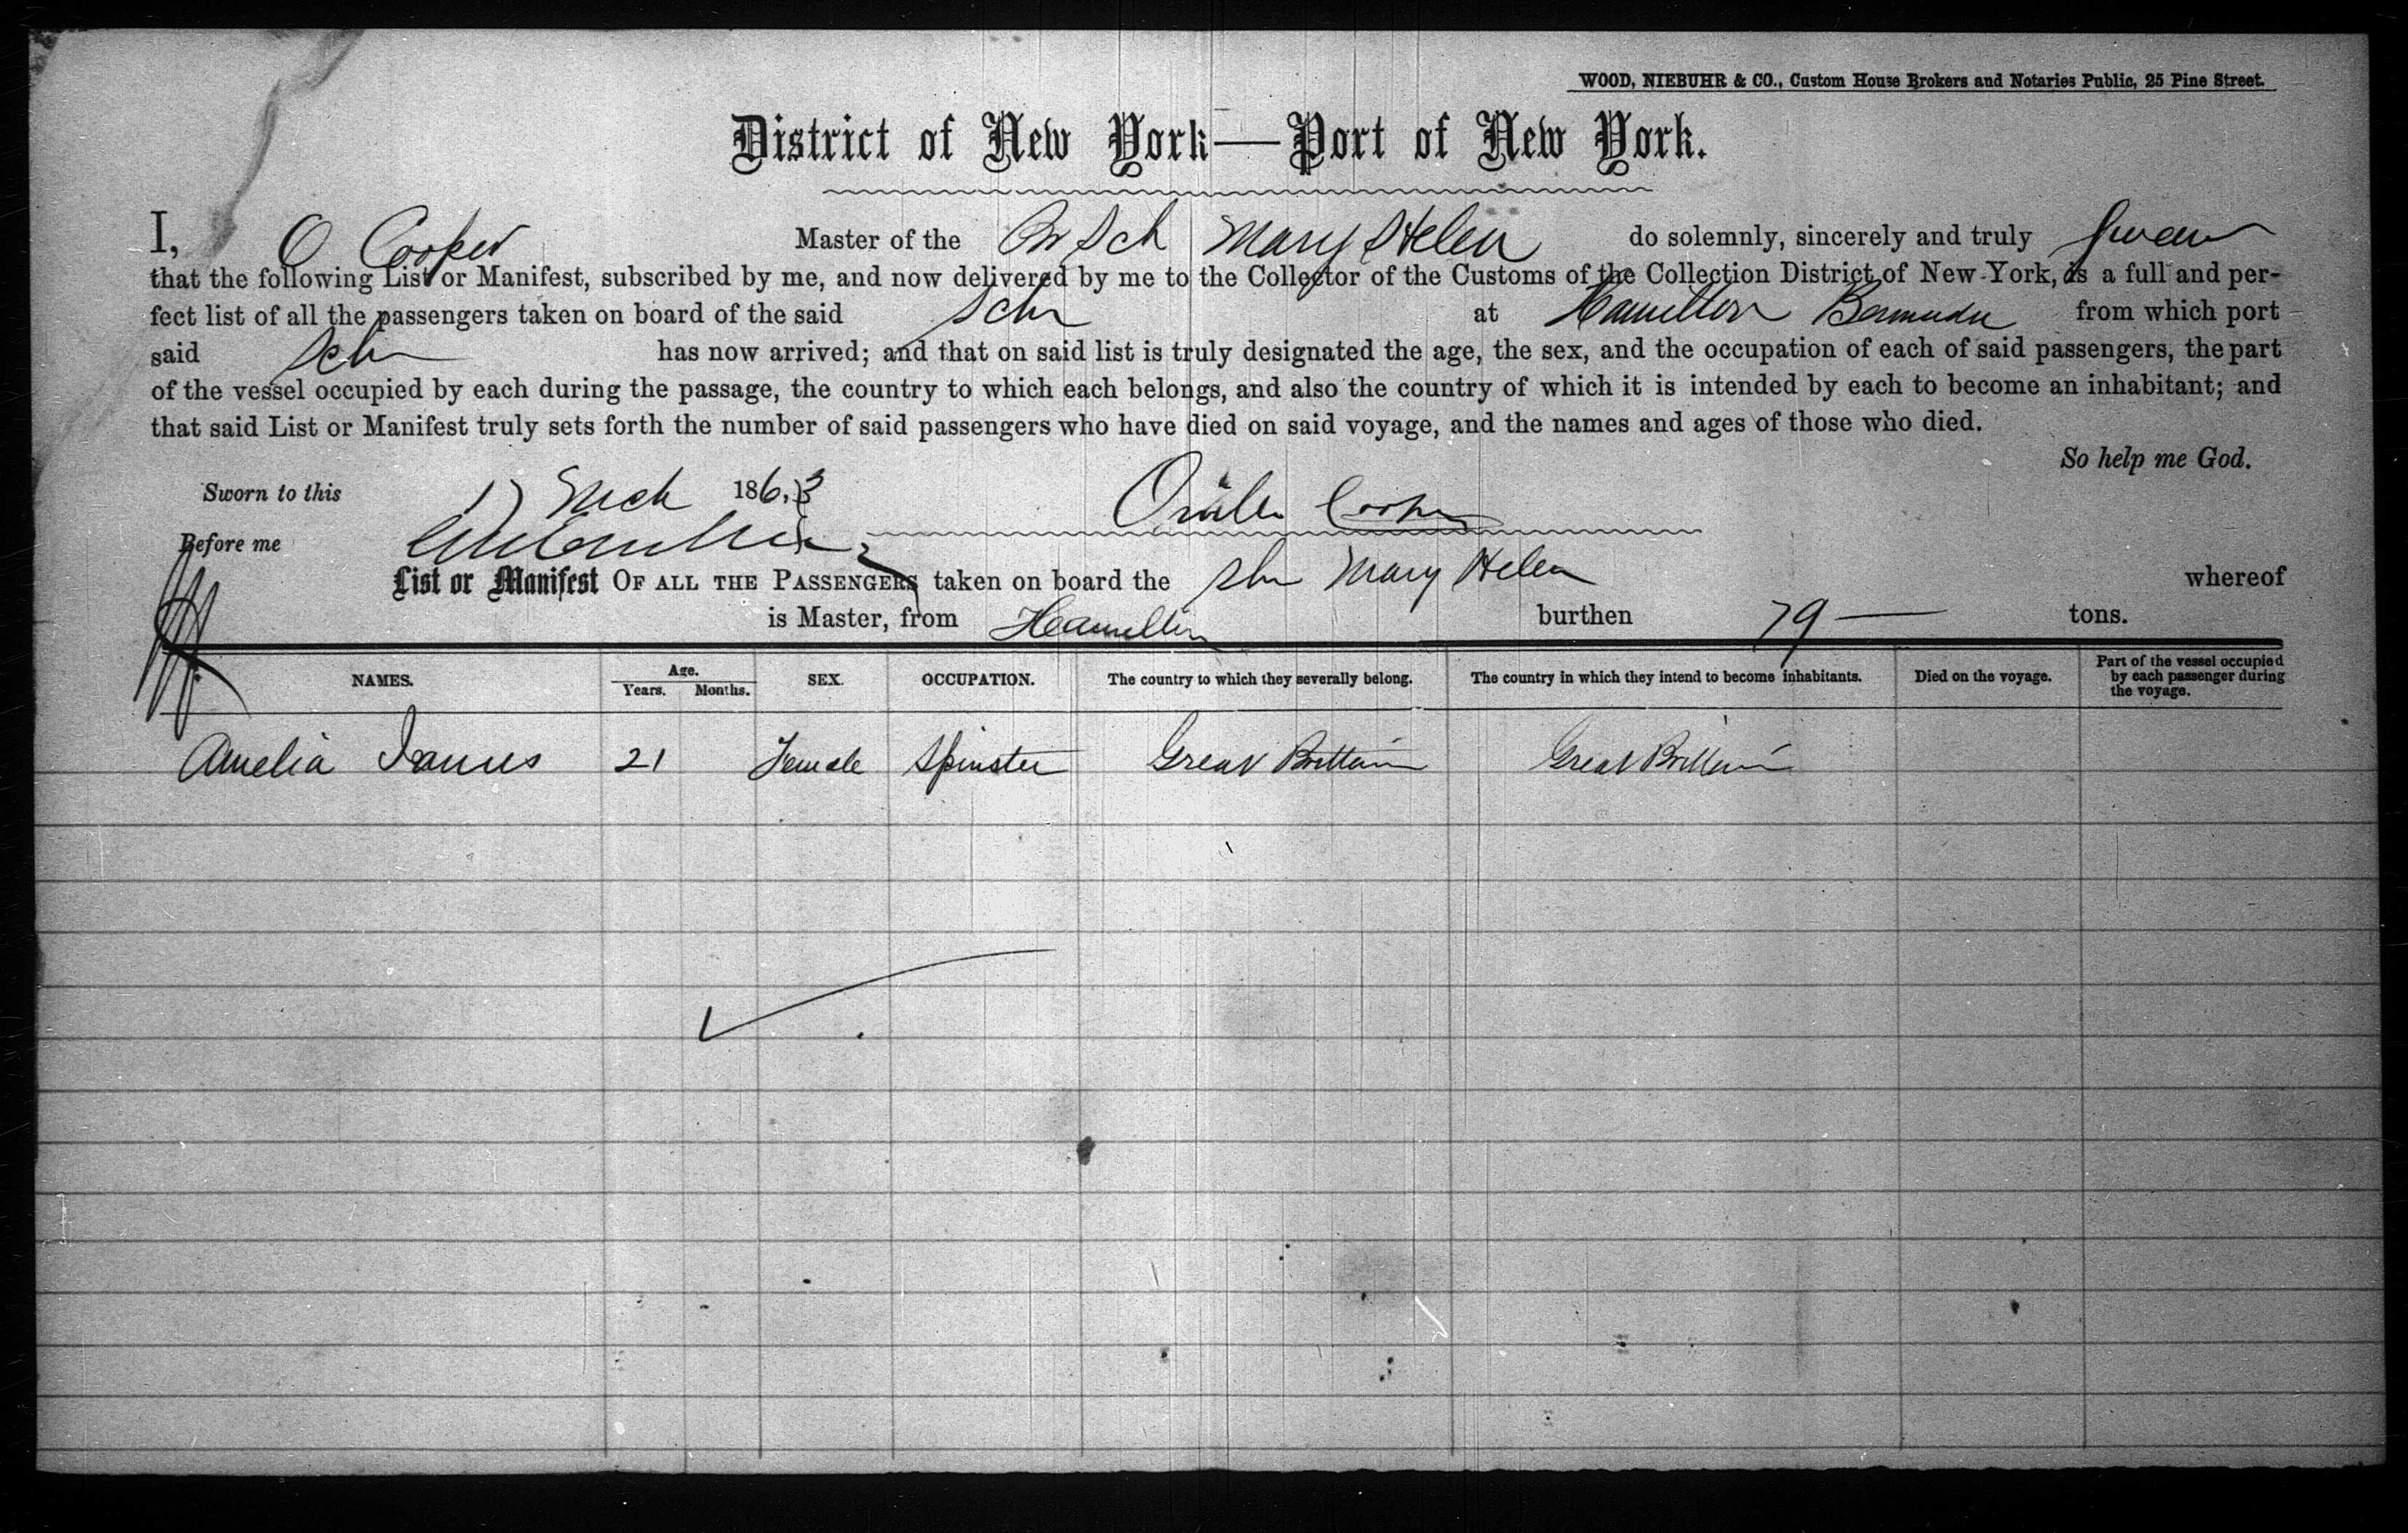 WOOD, NIEBUHR & CO., Custom House Brokers and Notaries Public, 25 Pine Street.
District of New York—Port of New York.
I, O Cooper Master of the Br Sch Mary Helen do solemnly, sincerely and truly Swear
that the following List or Manifest, subscribed by me, and now delivered by me to the Collector of the Customs of the Collection District of New-York, is a full and per-
fect list of all the passengers taken on board of the said Schr at Hamilton Bermuda from which port
said Schr has now arrived; and that on said list is truly designated the age, the sex, and the occupation of each of said passengers, the part
of the vessel occupied by each during the passage, the country to which each belongs, and also the country of which it is intended by each to become an inhabitant; and
that said List or Manifest truly sets forth the number of said passengers who have died on said voyage, and the names and ages of those who died.
So help me God.
Sworn to this 17 Mch 1863 Cooper
Before me
List or Manifest OF ALL THE PASSENGERS taken on board the Schr Mary Helen whereof
is Master, from Hamilton burthen 79 — tons.
NAMES. Age. Years. Months. SEX. OCCUPATION. The country to which they severally belong. The country in which they intend to become inhabitants. Died on the voyage. Part of the vessel occupied by each passenger during the voyage.
Amelia 21 Female Spinster Great Brittain Great Brittain